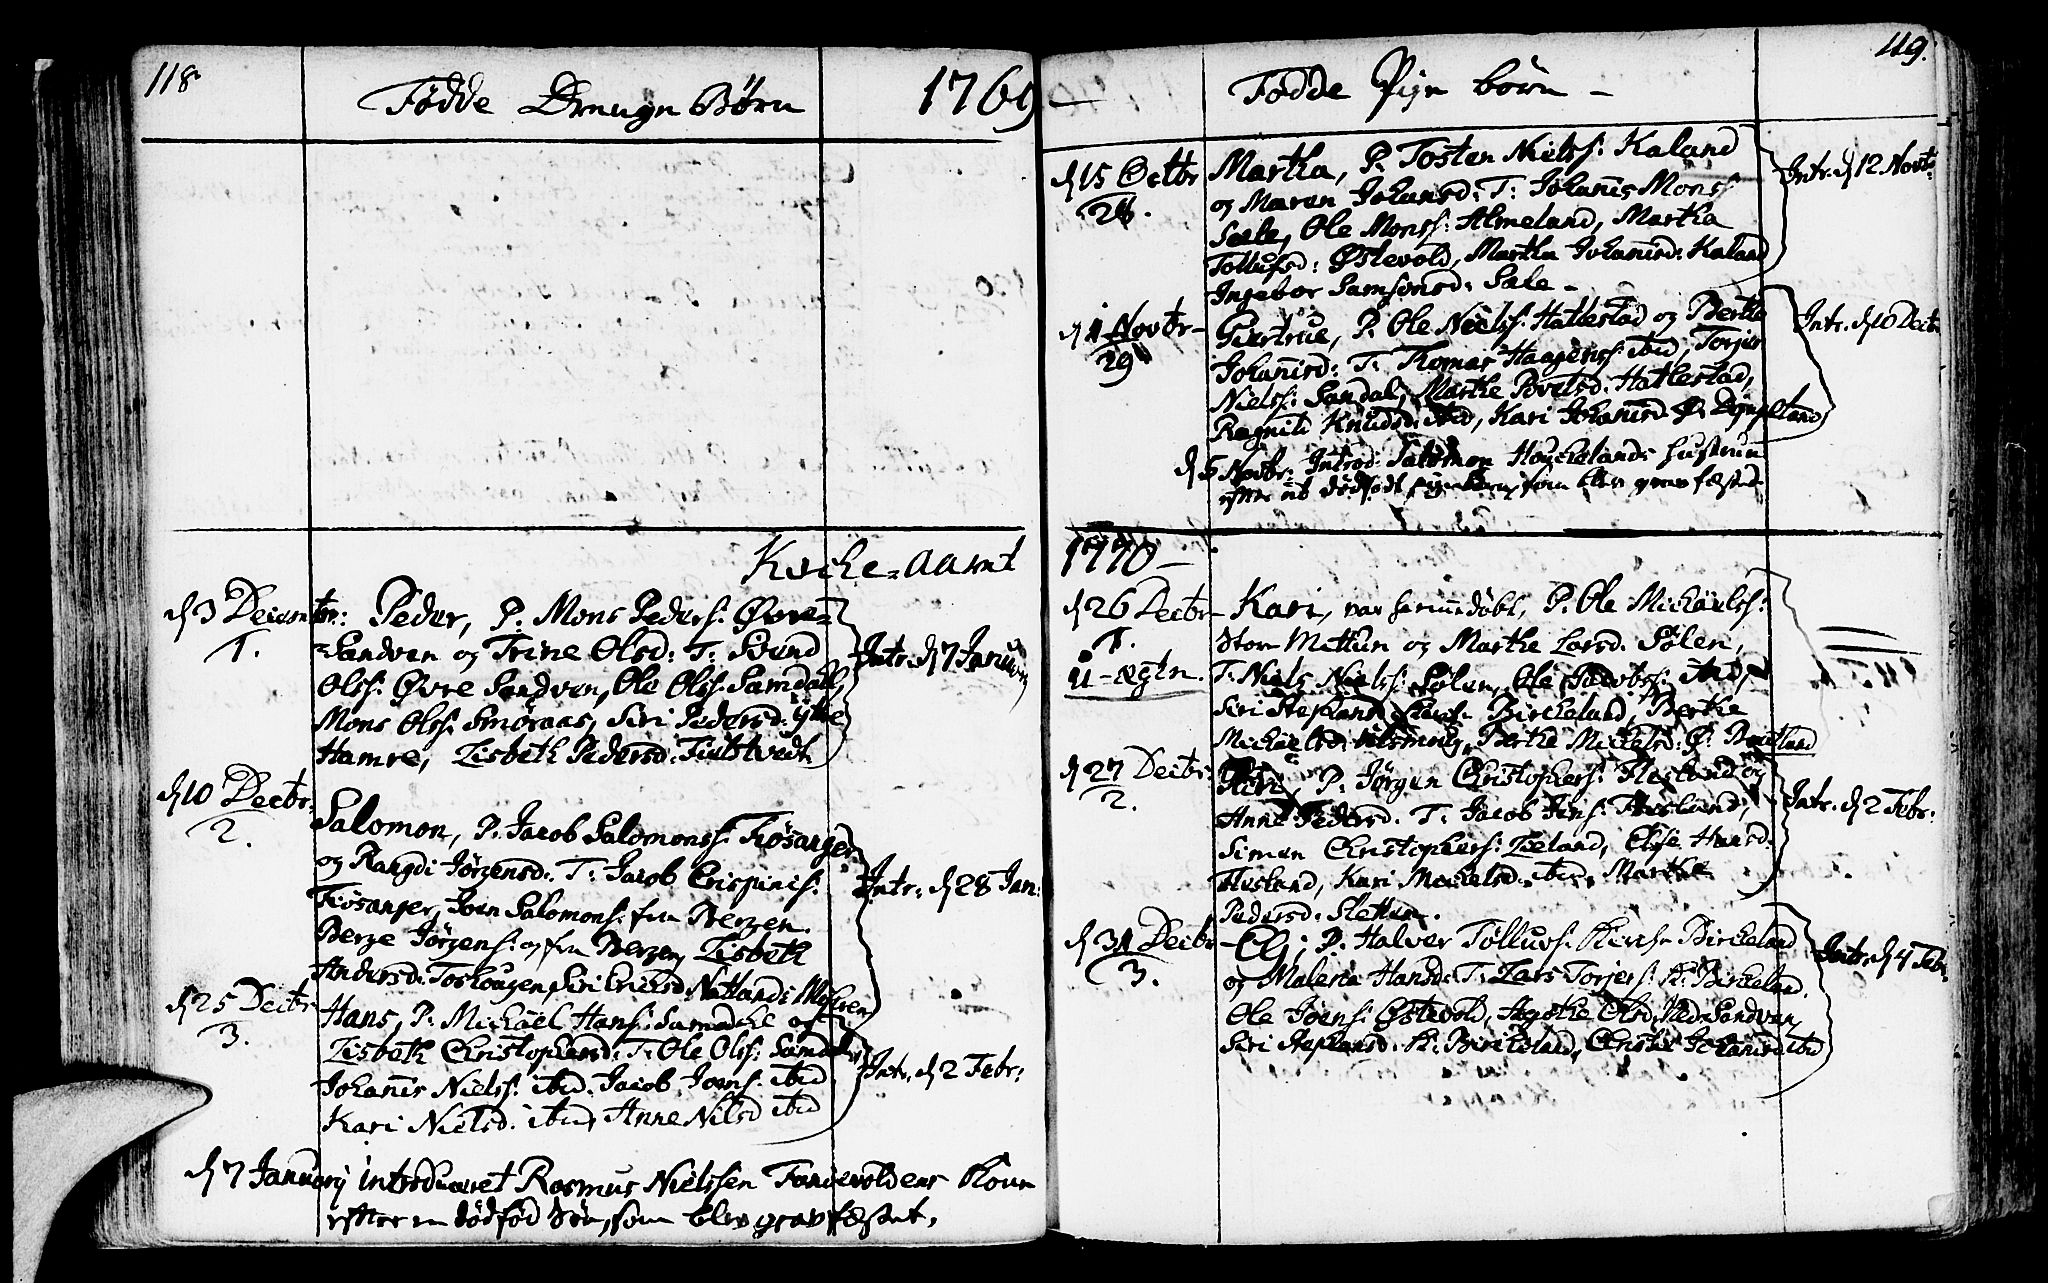 118
Fødde Drenge Børn
1769
Kirke-Aaret
d 3 Decembr: Peder, P. Mons Peders: Øvre=
1.
=Sandven og Trine Olsd: T: Svend
Olss: Øvre Sandven, Ole Olss. Samdahl,
Mons Olss: Smøraas, Siri Pedersd: Ytre
Hamre, Lisbeth Pedersd: Fieltvedt
Intr. d 7 January
d 10 Decbr:
2.
Salomon, P. Jacob Salomonss: Fiøsanger
og Rangdi Jørgensd: T: Jacob Crispinis:
Fiøsanger, Joen Salomons: fra Bergen
Berge Jørgens: og fra Bergen Lisbeth
Andersd: Siri Ericsd: Natlands
Intr: d 28 Jan:
d 25 Decbr
3.
Hans, P. Michael Hans: og
Lisbeth Christophersd: T: Ole Olss: Samdahl,
Johanis Nielss: ibid. Jacob Joens: ibid
Kari Nielsd: ibid, Anne Nilsd ibid
Intr. d 2 Febr:
d 7 January introduceret Rasmus Nielssen Kone
efter en dødfød Søn, som blev gravfæstet,
119.
Fødde Pige børn -
d 15 Octbr
28.
Martha, P. Tosten Nielss: Kaland
og Maren Johansd: T: Johanis Mons
Sæle, Ole Monss: Almeland, Martha
Tollufsd: Østevold, Martha Johanisd: Kaland
Ingebor Samsonsd: Sæle -
Intr. d 12. Novbr:
d 1 Novbr-
29
Giertrue, P. Ole Nielss: Hatlestad og Berthe
Johanisd: T: Thomas Haagenss: ibid, Torjer
Nielss: Sandal, Marthe Povelsd: Hatlestad,
Ragnild Knudsd: ibid, Kari Johanisd
Intr. d 10 Decbr
d 5 Novbr: Introd: Salomon Houckelands hustrue
efter et dødfødt pigebarn, som blev grav fæstet
1770 -
d 26 Decbr-
1.
u-ægte.
Kari, var hiemmedøbt, P. Ole Michaelss:
Store Mittun og Marthe Larsd: Sølen,
T. Niels Nielss: Sølen, Ole Jacobss: ibid,
Siri Stephansd Birckeland, Berthe
Michaelsd: Berthe Mickelsd:
d 27 Decbr:
2.
Siri, P. Jørgen Christophers: Flesland og
Anne Pedersd. T: Jacob Jens:
Simen Christophers: Lieland, Else Hansd:
Kari Mickelsd: ibid, Marthe
Pedersd: Sletten.
Intr. d 2 Febr:
d 31 Decbr
3.
- Eli, P. Halver Tøllevs: Kirch-Birckeland
og Malena Hansd: T: Lars Torjers: K: Birckeland.
Ole Joens: Østevold, Agothe Olsd: Nedre Sandven,
Siri Stephansd: K: Birckeland, Christi Johanisd ibid
Intr. d 4 Febr